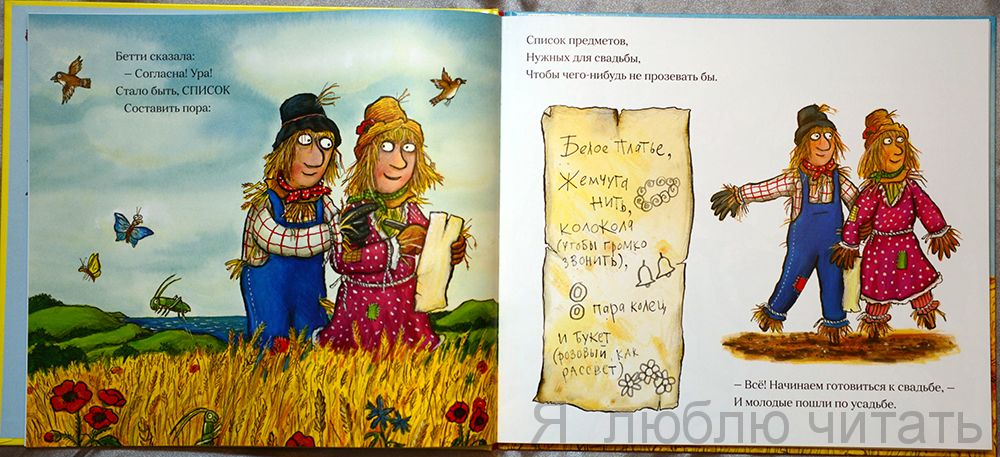 Бетти сказала:
– Согласна! Ура!
Стало быть, СПИСОК
Составить пора:
Список предметов,
Нужных для свадьбы,
Чтобы чего-нибудь не прозевать бы.
Белое платье,
Жемчуга
нить,
колокола
(чтобы громко
звонить),
пара колец
и букет
(розовый, как
рассвет)
– Всё! Начинаем готовиться к свадьбе, –
И молодые пошли по усадьбе.
Я люблю читать